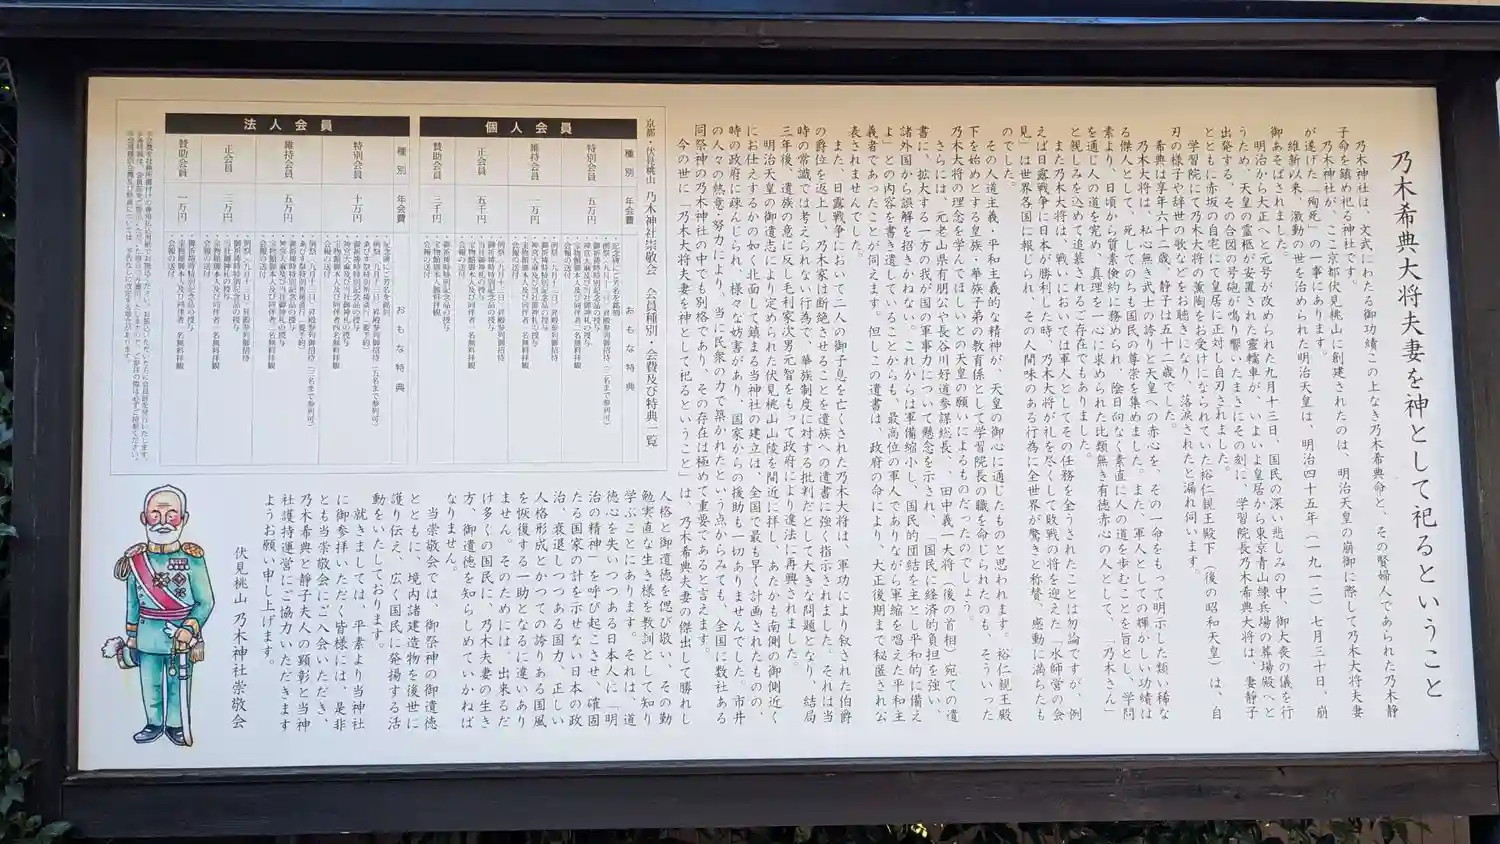 乃木希典大将夫妻を神として祀るということ
乃木神社は、文武にわたる御功績この上なき乃木希典命と、その賢婦人であられた乃木静
子命を鎮め祀る神社です。
乃木神社が、ここ京都伏見桃山に創建されたのは、明治天皇の崩御に際して乃木大将夫妻
が遂げた「殉死」の一事にあります。
維新以来、激動の世を治められた明治天皇は、明治四十五年(一九一二)七月三十日、崩
御あそばされました。
明治から大正へと元号が改められた九月十三日、国民の深い悲しみの中、御大喪の儀を行
うため、天皇の霊柩が安置された霊轜車が、いよいよ皇居から東京青山練兵場の葬場殿へと
出発する、その合図の号砲が鳴り響いたまさにその刻に、学習院長乃木希典大将は、妻静子
とともに赤坂の自宅にて皇居に正対し自刃されました。
学習院にて乃木大将の薫陶をお受けになられていた裕仁親王殿下(後の昭和天皇)は、自
刃の様子や辞世の歌などをお聴きになり、落涙されたと漏れ伺います。
希典は享年六十二歳、静子は五十二歳でした。
乃木大将は、私心無き武士の誇りと天皇への赤心を、その一命をもって明示した類い稀な
る傑人として、死してのちも国民の尊崇を集めました。また、軍人としての輝かしい功績は
素より、日頃から質素倹約に務められ、陰日向なく素直に人の道を歩むことを旨とし、学問
を通じ人の道を究め、真理を一心に求められた比類無き有徳赤心の人として、「乃木さん」
と親しみを込めて追慕されるご存在でもありました。
また乃木大将は、戦いにおいては軍人としてその任務を全うされたことは勿論ですが、例
えば日露戦争に日本が勝利した時、乃木大将が礼を尽くして敗戦の将を迎えた「水師営の会
見」は世界各国に報じられ、その人間味のある行為に全世界が驚きと称賛、感動に満ちたも
のでした。
その人道主義・平和主義的な精神が、天皇の御心に通じたものと思われます。裕仁親王殿
下を始めとする皇族・華族子弟の教育係として学習院長の職を命じられたのも、そういった
乃木大将の理念を学んでほしいとの天皇の願いによるものだったのでしょう。
さらには、元老山県有朋公や長谷川好道参謀総長、田中義一大将(後の首相)宛ての遺
書に、拡大する一方の我が国の軍事力について懸念を示され、「国民に経済的負担を強い、
諸外国から誤解を招きかねない。これからは軍備縮小し、国民的団結を主とし平和的に備え
よ」との内容を書き遺していることからも、最高位の軍人でありながら軍縮を唱えた平和主
義者であったことが伺えます。但しこの遺書は、政府の命により、大正後期まで秘匿され公
表されませんでした。
また、日露戦争において二人の御子息を亡くされた乃木大将は、軍功により叙された伯爵
の爵位を返上し、乃木家は断絶させることを遺族への遺書に強く指示されました。それは当
時の常識では考えられない行為で、華族制度に対する批判だとして大きな問題となり、結局
三年後、遺族の意に反し毛利家次男元智をもって政府により違法に再興されました。
明治天皇の御遺志により定められた伏見桃山山陵を間近に拝し、あたかも南側の御側近く
にお仕えするかの如く北面して鎮まる当神社の建立は、全国で最も早く計画されたものの、
時の政府に疎んじられ、様々な妨害があり、国家からの後助も一切ありませんでした。市井
の人々の熱意・努力により、当に民衆の力で築かれたという点からみても、全国に数社ある
同祭神の乃木神社の中でも別格であり、その存在は極めて重要であると言えます。
今の世に「乃木大将夫妻を神として祀るということ」は、乃木希典夫妻の傑出して勝れし
人格と御遺徳を偲び敬い、その勤
勉実直な生き様を教訓として知り
学ぶことにあります。それは、道
徳心を失いつつある日本人に「明
治の精神」を呼び起こさせ、確固
たる国家の計を示せない日本の政
治、衰退しつつある国力、正しい
人格形成とかつての誇りある国風
を恢復する一助となるに違いあり
ません。そのためには、出来るだ
け多くの国民に、乃木夫妻の生き
方、御遺徳を知らしめていかねば
なりません。
当崇敬会では、御祭神の御遺徳
とともに、境内諸建造物を後世に
護り伝え、広く国民に発揚する活
動をいたしております。
就きましては、平素より当神社
に御参拝いただく皆様には、是非
とも当崇敬会にご入会いただき、
乃木希典と静子夫人の顕彰と当神
社護持運営にご協力いただきます
ようお願い申し上げます。
伏見桃山 乃木神社崇敬会
京都・伏見桃山 乃木神社崇敬会 会員種別・会費及び特典一覧
個人会員
種別 年会費 おもな特典
特別会員 五万円
維持会員 一万円
正会員 五千円
賛助会員 三千円
法人会員
種別 年会費 おもな特典
特別会員 十万円
維持会員 五万円
正会員 三万円
賛助会員 一万円